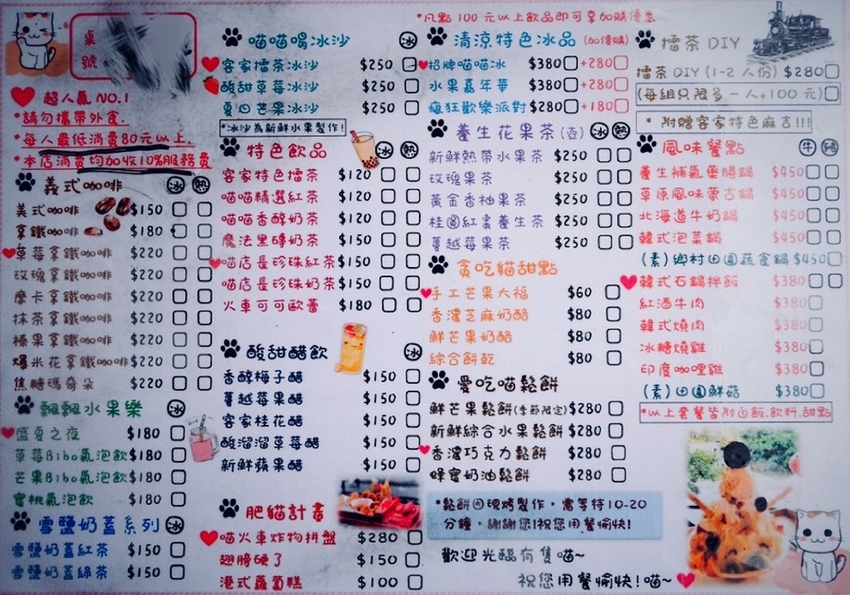 *凡點100元以上飲品即可享加購優惠
桌號
超人氣 NO.1
*請勿攜帶外食.
*每人最低消費80元以上.
*本店消費均加收10%服務費
義式咖啡 冰 熱
美式咖啡 $150
拿鐵咖啡 $180
草莓拿鐵咖啡 $220
玫瑰拿鐵咖啡 $220
摩卡拿鐵咖啡 $220
抹茶拿鐵咖啡 $220
榛果拿鐵咖啡 $220
爆米花拿鐵咖啡 $220
焦糖瑪奇朵 $220
飄飄水果樂 冰
盛夏之夜 $180
草莓Bibo氣泡飲 $180
芒果Bibo氣泡飲 $180
蜜桃氣泡飲 $180
雪鹽奶蓋系列 冰
雪鹽奶蓋紅茶 $150
雪鹽奶蓋綠茶 $150
喵喵喝冰沙 冰
客家擂茶冰沙 $250
酸甜草莓冰沙 $250
夏日芒果冰沙 $250
*冰沙為新鮮水果製作!
特色飲品 冰 熱
客家特色擂茶 $120
喵喵精選紅茶 $120
喵喵香醇奶茶 $120
魔法黑磚奶茶 $150
喵店長珍珠紅茶 $150
喵店長珍珠奶茶 $150
火車可可歐蕾 $180
酸甜醋飲 冰
香醇梅子醋 $150
蔓越莓果醋 $150
客家桂花醋 $150
酸溜溜草莓醋 $150
新鮮蘋果醋 $150
肥貓計畫
喵火車炸物拼盤 $280
翅膀硬了 $150
港式蘿蔔糕 $100
清涼特色冰品 (加價購)
招牌喵喵冰 $380 +280
水果嘉年華 $380 +280
瘋狂歡樂派對 $280 +180
養生花果茶(壺) 冰 熱
新鮮熱帶水果茶 $250
玫瑰果茶 $250
黃金香柚果茶 $250
桂圓紅棗養生茶 $250
蔓越莓果茶 $250
貪吃貓甜點
手工芒果大福 $60
香濃芝麻奶酪 $80
鮮芒果奶酪 $80
綜合餅乾 $80
愛吃喵鬆餅
鮮芒果鬆餅(季節限定) $280
新鮮綜合水果鬆餅 $280
香濃巧克力鬆餅 $280
蜂蜜奶油鬆餅 $280
*鬆餅因現烤製作，需等待10-20
分鐘，謝謝您!祝您用餐愉快!
歡迎光臨有隻喵~
祝您用餐愉快!喵~
擂茶 DIY
擂茶 DIY (1-2 人份) $280
(每組只限多一人+100元)
* 附贈客家特色麻吉!!!
風味餐點 牛 豬
養生補氣藥膳鍋 $450
草原風味蒙古鍋 $450
北海道牛奶鍋 $450
韓式泡菜鍋 $450
(素)鄉村田園蔬食鍋 $450
韓式石鍋拌飯 $380
紅酒牛肉 $380
韓式燒肉 $380
冰糖燒雞 $380
印度咖哩雞 $380
(素)田園鮮菇 $380
*以上套餐皆附白飯.飲料.甜點